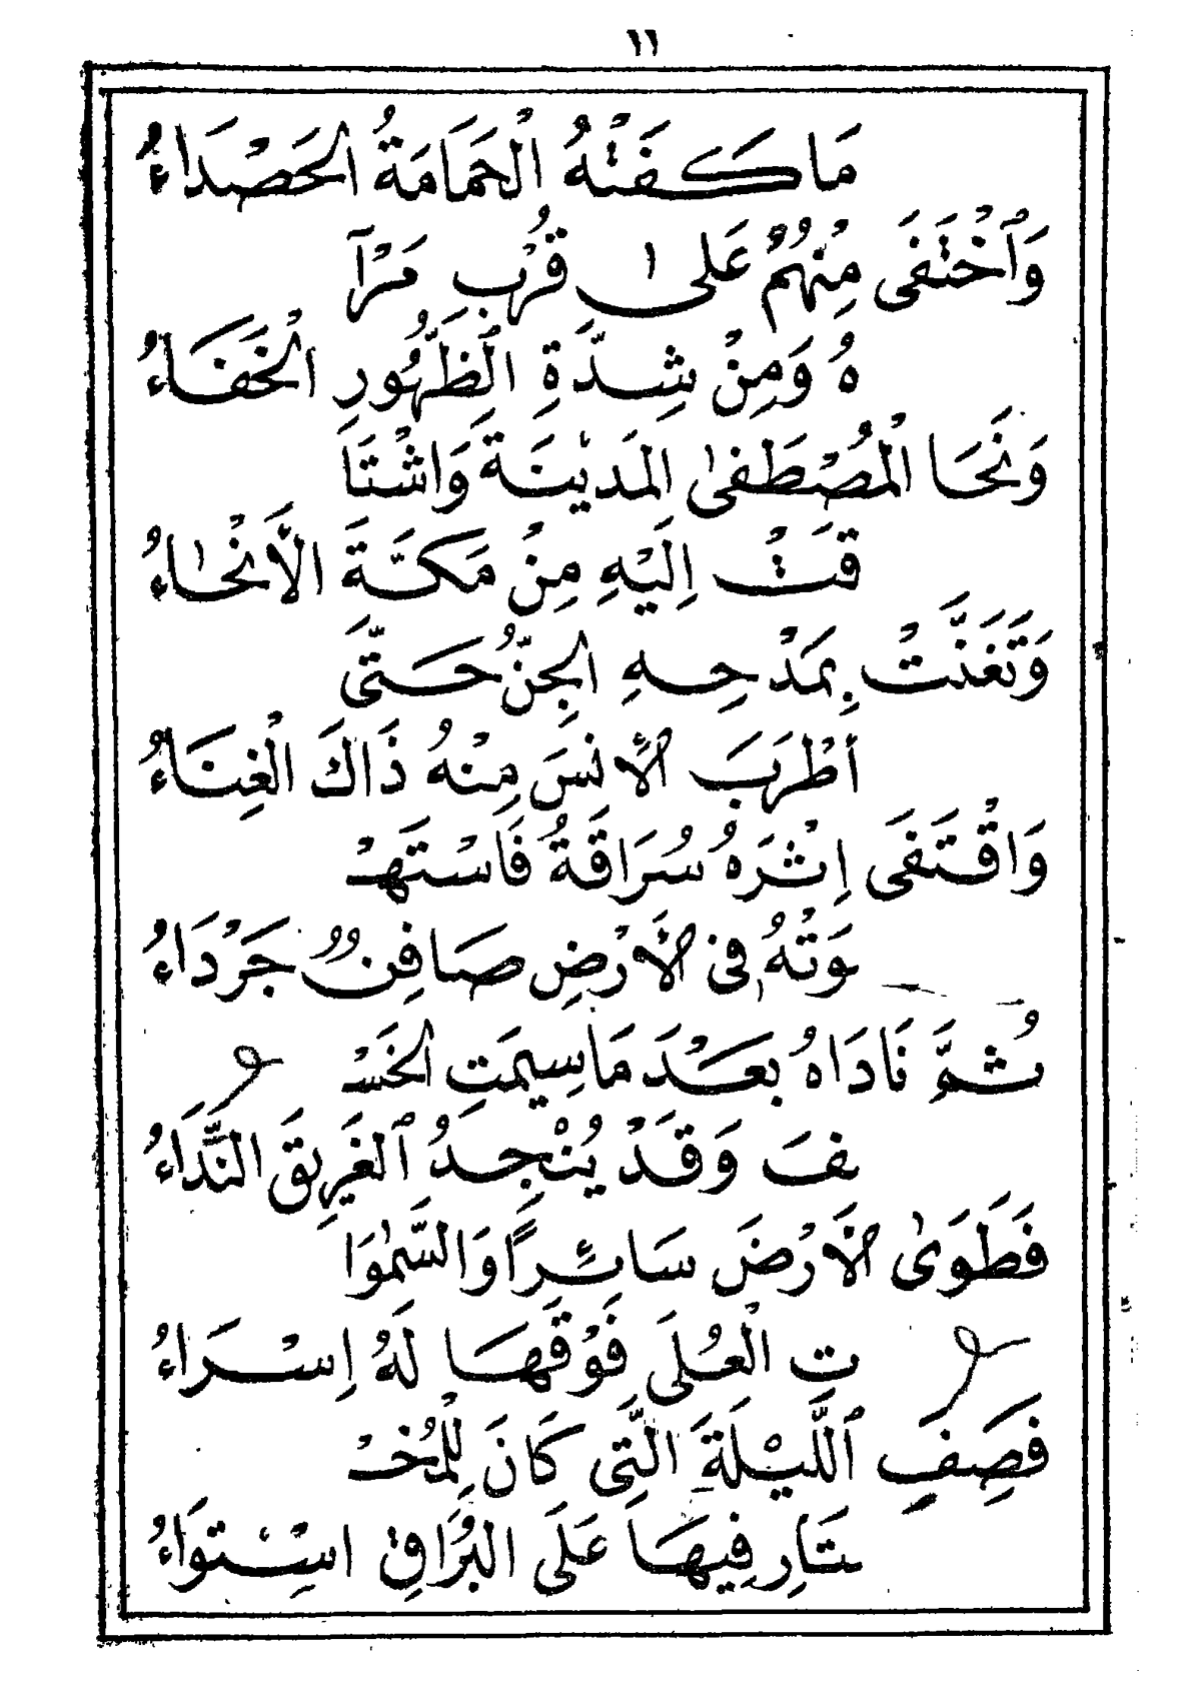 ١١
مَا كَفَتْهُ الْحَمَامَةُ الحَصْدَاءُ
وَٱخْتَفَى مِنْهُمُ عَلى ا قُرْبِ مَرْآ
هُ وَمِنْ شِدَّةِ الظُّهُورِ الْخَفَاءُ
وَنَحَا الْمُصْطَفىٰ المَديْنَةَ وَاشْتَا
قَتْ اِلَيْهِ مِنْ مَكَّةَ الأَنْحَاءُ
وَتَغَنَّتْ بِمَدْحِهِ الجِنُّ حَتَّى
أطْرَبَ الأنسَ مِنْهُ ذَاكَ الْغِنَاءُ
وَاقْتَفَى اِثْرَهُ سُرَاقَةُ فَاسْتَهْـ
ـوَتْهُ فِى الأَرْضِ صَافِنٌ جَرْدَاءُ
ثُمَّ نَادَاهُ بَعْدَ مَا سِيمَتِ الخَسْـ
ـفَ وَقَدْ يُنْجِدُ ٱلغَرِيقَ النَّدَاءُ
فَطَوَىٰ الأَرْضَ سَائِرًا وَالسَّمٰوَا
تِ الْعُلَى فَوْقَهَا لَهُ اِسْرَاءُ
فَصِفِ ٱللَّيْلَةَ الَّتِى كَانَ لِلْمُخْـ
ـتَارِ فِيهَا عَلَى البُرَاقِ اسِتوَاءُ